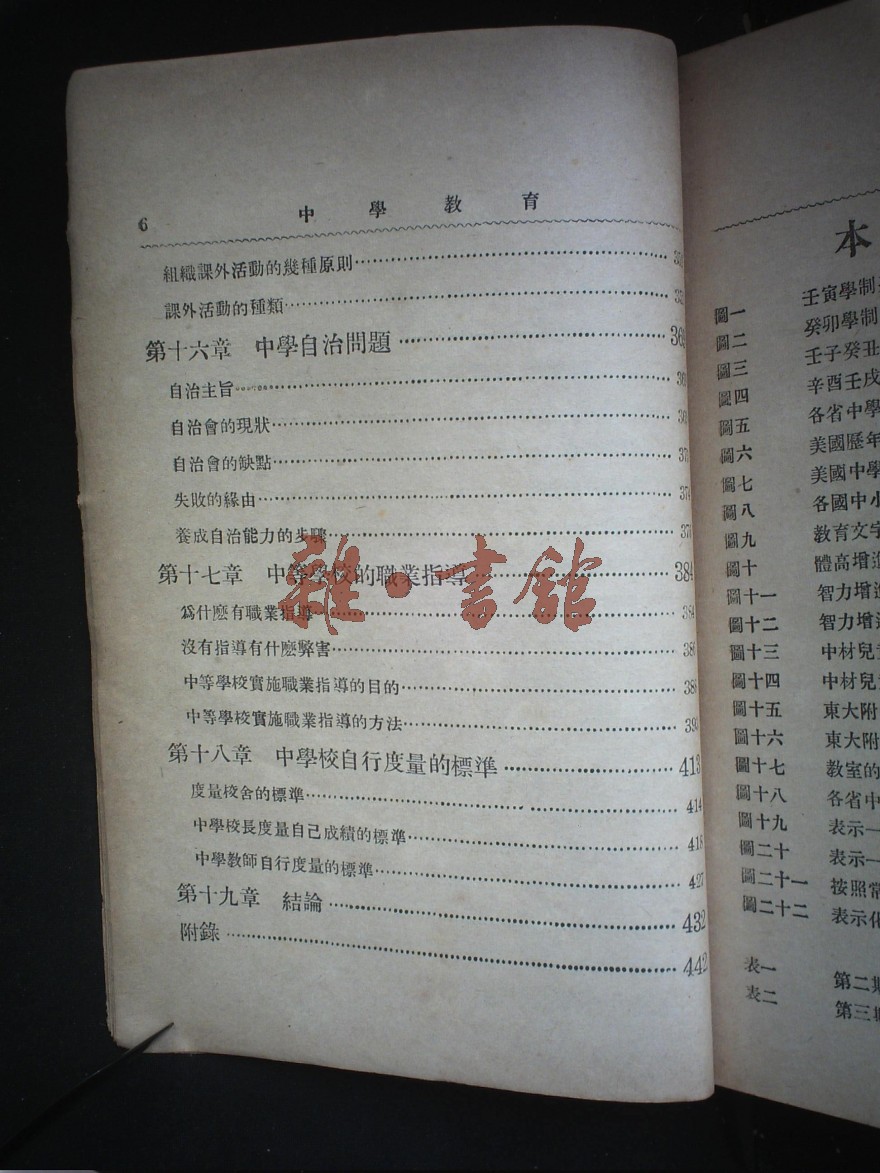 6 中學教育
組織課外活動的幾種原則
課外活動的種類
第十六章 中學自治問題
自治主旨
自治會的現狀
自治會的缺點
失敗的緣由
養成自治能力的步驟
第十七章 中等學校的職業指導 384
爲什麽有職業指導 384
沒有指導有什麽弊害
中等學校實施職業指導的目的
中等學校實施職業指導的方法
第十八章 中學校自行度量的標準 413
度量校舍的標準 414
中學校長度量自己成績的標準 418
中學教師自行度量的標準 427
第十九章 結論 432
附錄 442
雜·書館
本
圖一 壬寅學制
圖二 癸卯學制
圖三 壬子癸丑
圖四 辛酉壬戌
圖五 各省中學
圖六 美國歷年
圖七 美國中學
圖八 各國中小
圖九 教育文字
圖十 體高增進
圖十一 智力增進
圖十二 智力增進
圖十三 中材兒童
圖十四 中材兒童
圖十五 東大附
圖十六 東大附
圖十七 教室的
圖十八 各省中
圖十九 表示一
圖二十 表示一
圖二十一 按照常
圖二十二 表示化
表一 第二
表二 第三